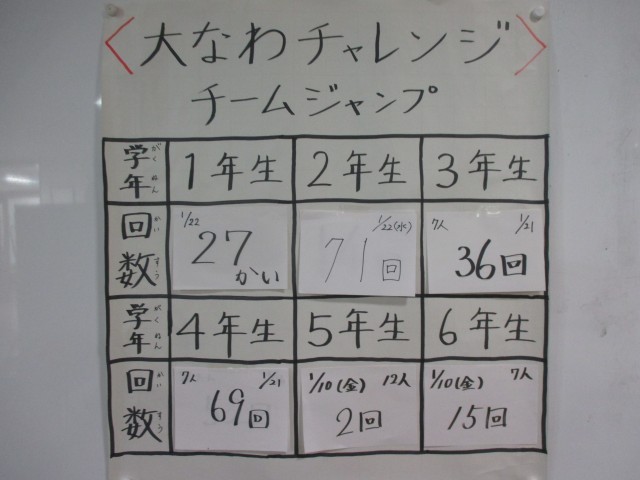 〈大なわチャレンジ〉
チームジャンプ
学年 がくねん 1年生 2年生 3年生
回数 かいすう 1/22 27かい 1/22(水) 71回 7人 1/21 36回
学年 がくねん 4年生 5年生 6年生
回数 かいすう 7人 1/21 69回 1/10(金) 12人 2回 1/10(金) 7人 15回